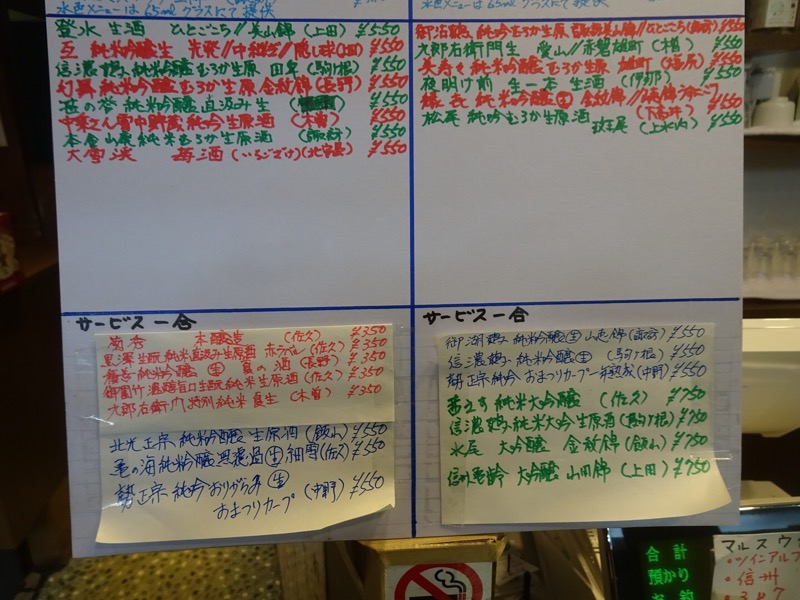 水色メニューは65mlグラスにて提供
登水 生酒 ひとごこち//美山錦 (上田) ¥550
亙 純米吟醸生 ¥550
信濃鶴 純米吟醸むろか生原 田皐 (駒ヶ根) ¥550
幻舞 純米吟醸むろか生原 金紋錦 (長野) ¥550
笹の誉 純米吟醸 直汲み生 ¥550
中乗さん 雪中貯蔵純吟生原酒 (木曽) ¥550
本金山廃純米むろか生原酒 (諏訪) ¥550
大雪渓 苺酒 (いちござけ) (北安曇) ¥550
水色メニューは65mlグラスにて提供
御湖鶴 純米吟醸むろか生原 美山錦//ひとごこち (諏訪) ¥550
九郎右衛門生 愛山//赤磐雄町 (木曽) ¥550
美寿々 純米吟醸むろか生原 雄町 (塩尻) ¥550
夜明け前 生一本 生酒 (伊那) ¥550
縁喜 純米吟醸 生 金紋錦// (下高井) ¥550
松尾 純吟むろか生原酒 (上水内) ¥550
サービス一合
菊秀 本醸造 (佐久) ¥350
黒澤生酛純米直汲み生原酒 赤ラベル (佐久) ¥350
福無純米吟醸 生 夏の酒 (長野) ¥350
御園竹 濃醇旨口生酛純米生原酒 (佐久) ¥350
九郎右衛門特別純米夏生 (木曽) ¥350
北光正宗 純米吟醸 生原酒 (飯山) ¥550
亀の海純米吟醸無濾過生 細雪 (佐久) ¥550
勢正宗 純吟おりがらみ 生
おまつりカープ (中野) ¥550
サービス一合
御湖鶴 純米吟醸 生 山恵錦 (諏訪) ¥550
信濃鶴 純米吟醸 生 (駒ヶ根) ¥550
勢正宗純吟 おまつりカープ一年熟成 (中野) ¥550
茜さす 純米大吟醸 (佐久) ¥750
信濃鶴 純米大吟生原酒 (駒ヶ根) ¥750
水尾 大吟醸 金紋錦 (飯山) ¥750
信州亀齢 大吟醸 山田錦 (上田) ¥750
合計
預かり
お釣
マルスウ
・ツインアルプ
・信州
・347